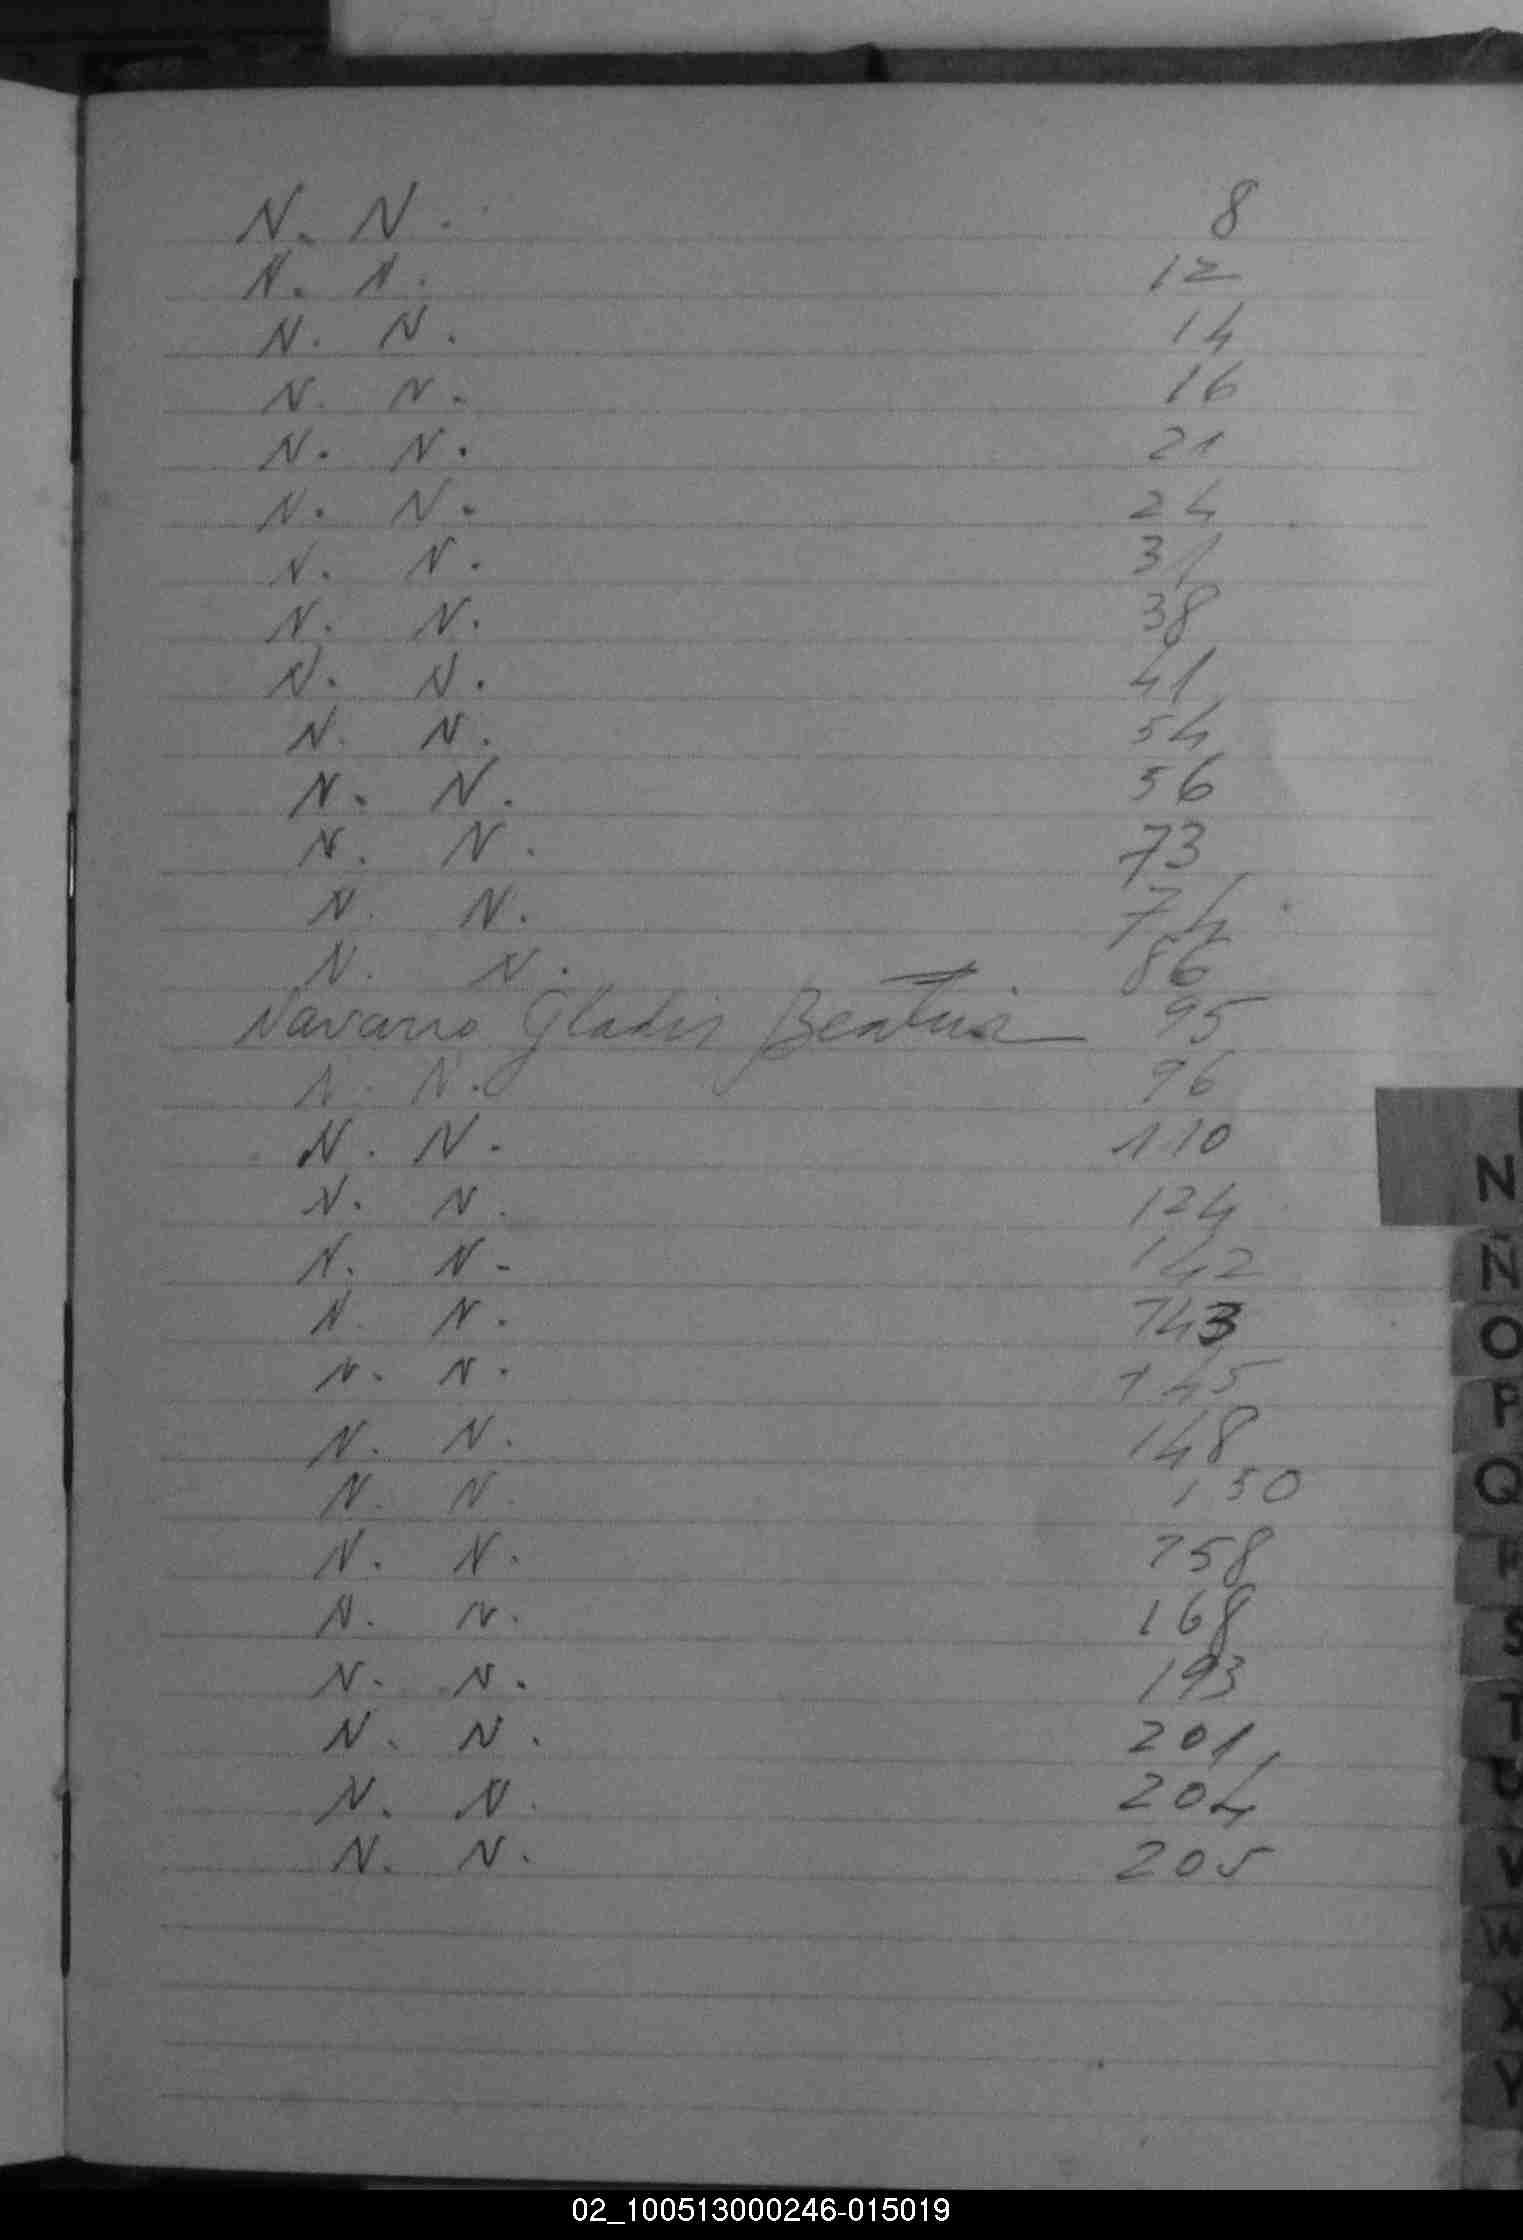 N. N. 8
N. N. 12
N. N. 14
N. N. 16
N. N. 21
N. N. 24
N. N. 31
N. N. 38
N. N. 41
N. N. 54
N. N. 56
N. N. 73
N. N. 74
N. N. 86
Navarro Gladis Beatriz 95
N. N. 96
N. N. 110
N. N. 124
N. N. 142
N. N. 143
N. N. 145
N. N. 148
N. N. 150
N. N. 158
N. N. 168
N. N. 193
N. N. 201
N. N. 204
N. N. 205
N
Ñ
O
P
Q
R
S
T
U
V
W
X
Y
02_100513000246-015019